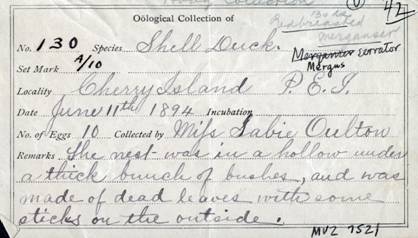 Collection
42
Oölogical Collection of
Redbreasted
merganser
No. 130 Species Shell Duck.
Merganser serrator
Mergus
Set Mark A/10
Locality Cherry Island P.E.I.
Date June 11th 1894 Incubation
No. of Eggs 10 Collected by Miss Sabie Oulton
Remarks. The nest was in a hollow under
a thick bunch of bushes, and was
made of dead leaves with some
sticks on the outside.
MVZ 7521